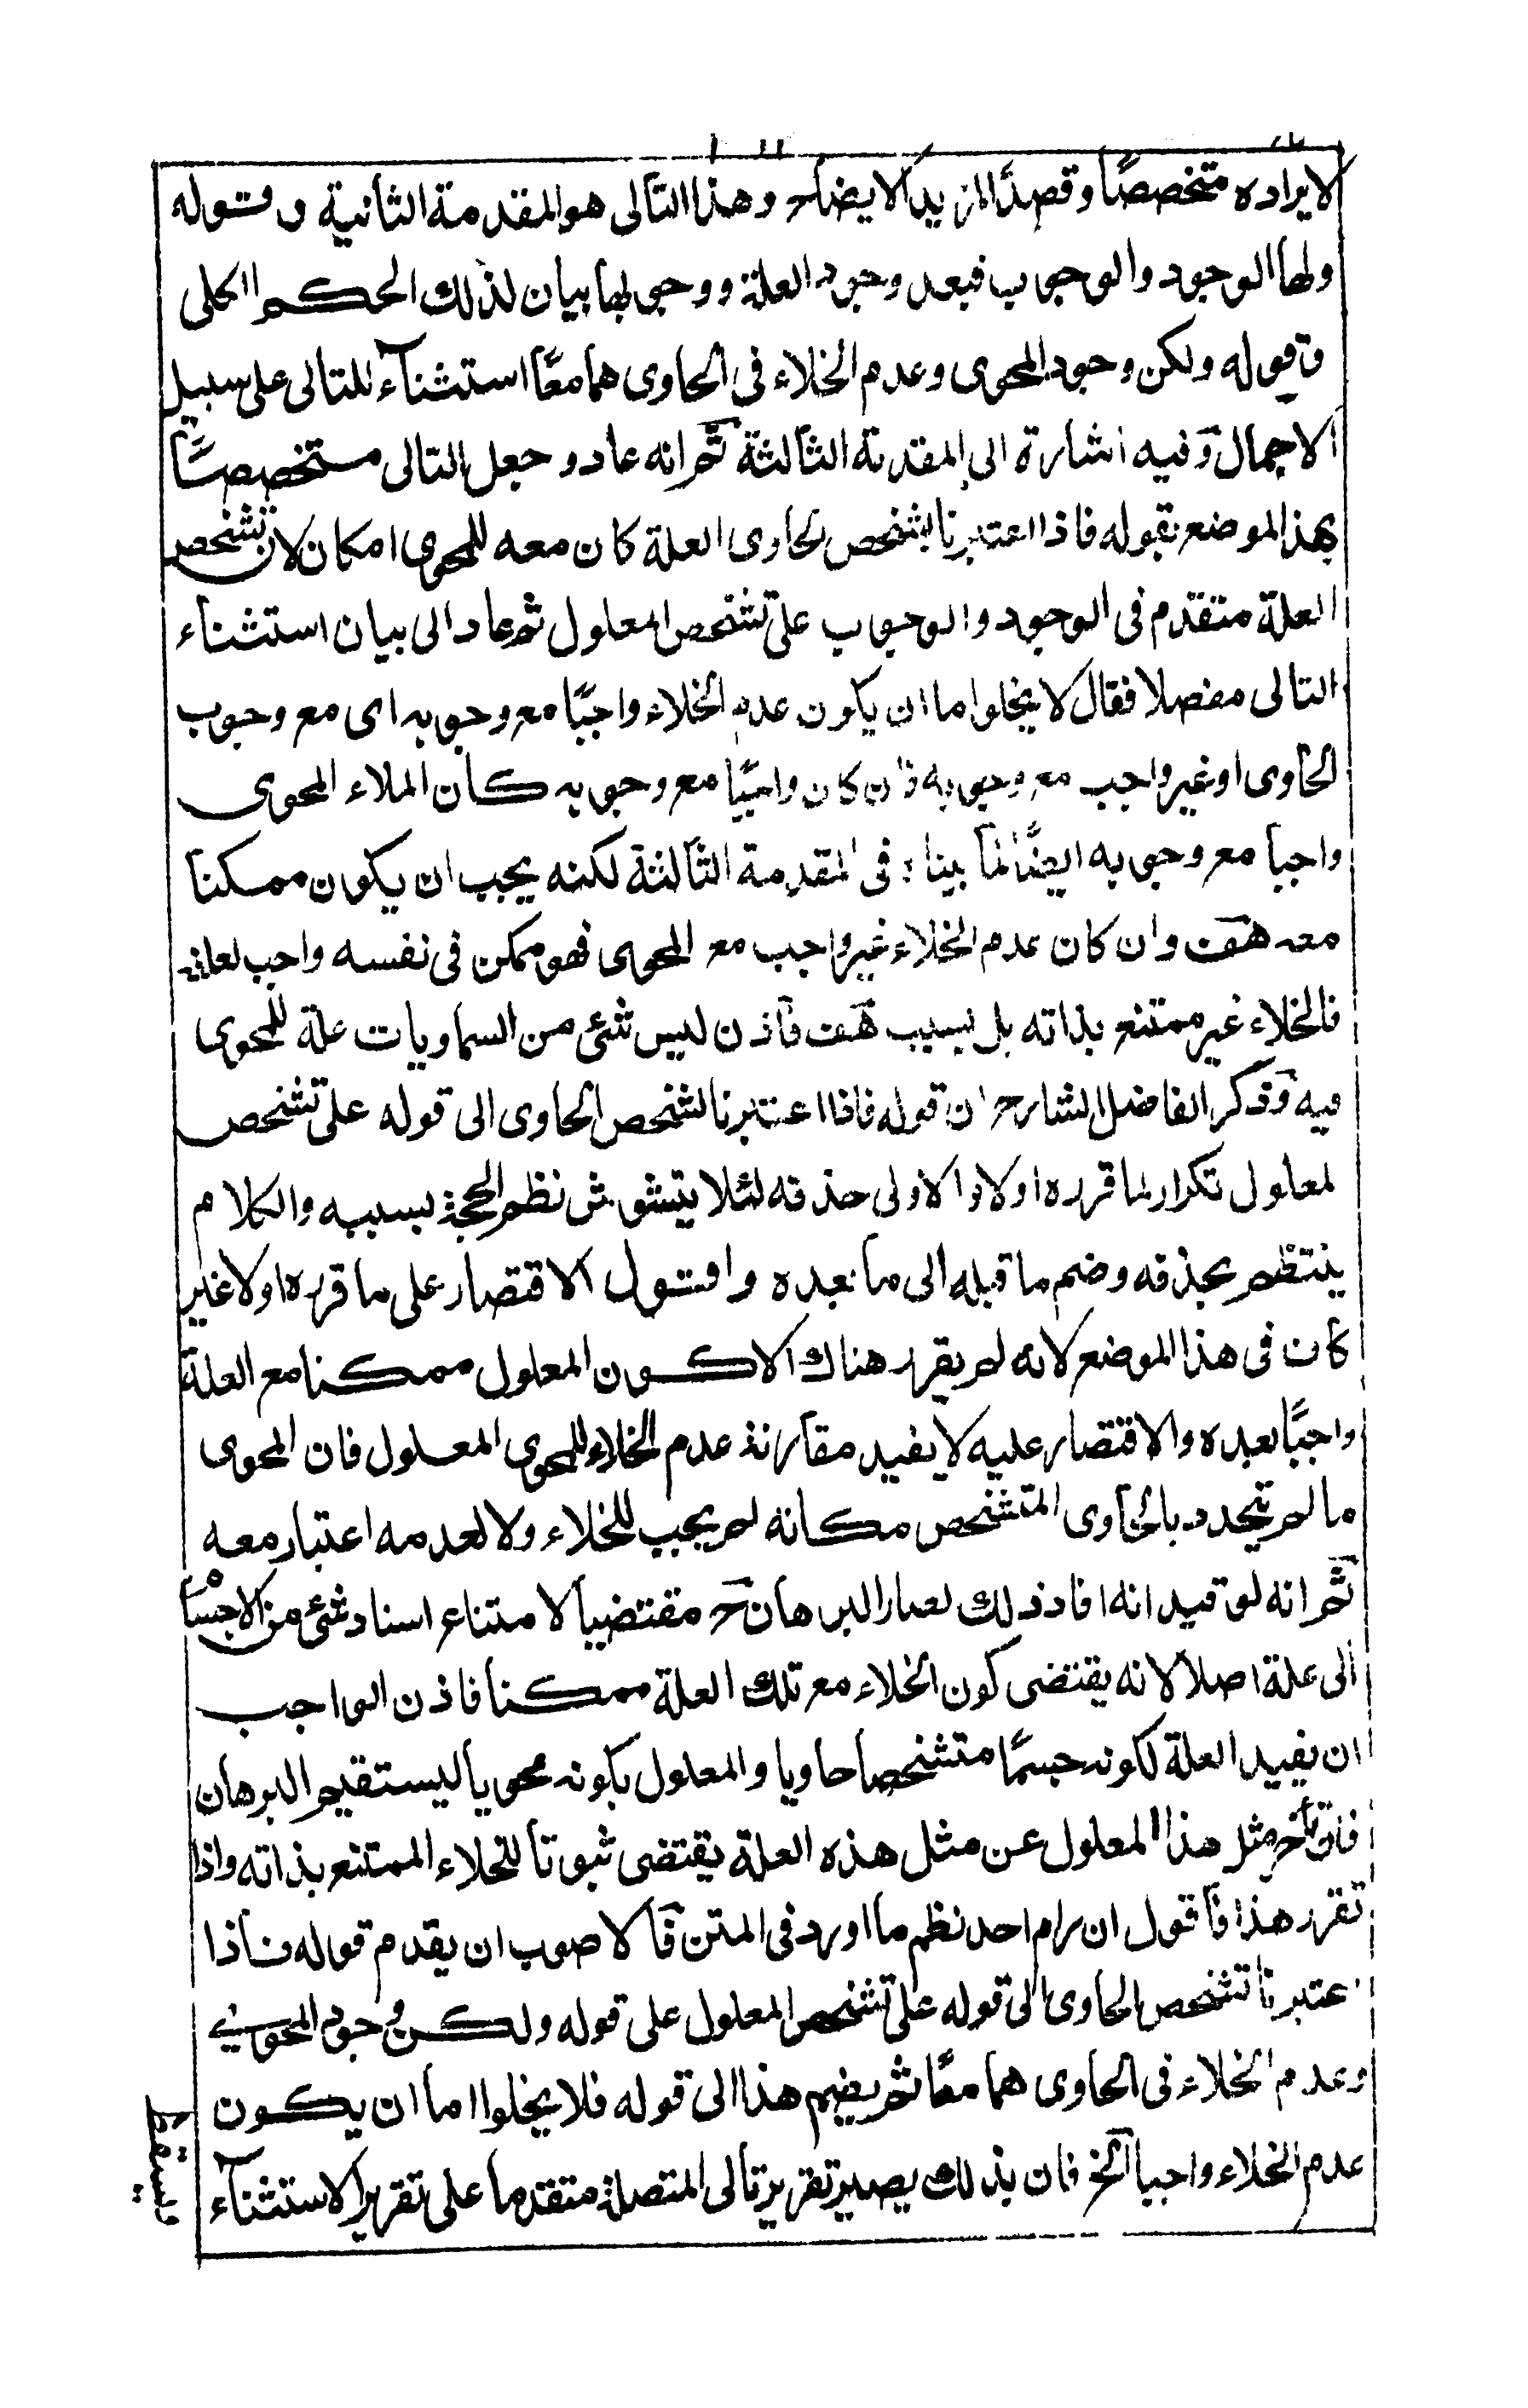 لايراده متخصصًا وقصدًا لمزيد الايضاح وهذا التالى هو المقدمة الثانية وقوله
ولها الوجود والوجوب فبعد وجود العلة ووجوبها بيان لذلك الحكم الكلى
وقوله ولكن وجود المحوى وعدم الخلاء فى الحاوى هما معًا استثناء للتالى على سبيل
الاجمال وفيه اشارة الى المقدمة الثالثة ثم انه عاد وجعل التالى متخصصًا
بهذا الموضع بقوله فاذا اعتبرنا تشخص الحاوى العلة كان معه للمحوى امكان لان تشخص
العلة متقدم فى الوجود والوجوب على تشخص المعلول ثم عاد الى بيان استثناء
التالى مفصلا فقال لا يخلوا ما ان يكون عدم الخلاء واجبًا مع وجوبه اى مع وجوب
الحاوى او غير واجب مع وجوبه فان كان واجبًا مع وجوبه كان الملاء المحوى
واجبا مع وجوبه ايضًا لما بينا فى المقدمة الثالثة لكنه يجب ان يكون ممكنا
معه هف وان كان عدم الخلاء غير واجب مع المحوى فهو ممكن فى نفسه واجب لعلة
فالخلاء غير ممتنع بذاته بل بسبب هف فاذن ليس شئ من السماويات علة للمحوى
فيه وذكر الفاضل الشارح ان قوله فاذا اعتبرنا تشخص الحاوى الى قوله على تشخص
لمعلول تكرار لما قرره اولا والاولى حذفه لئلا يتشوش نظم الحجة بسببه والكلام
ينتظم بحذفه وضم ما قبله الى ما بعده واقول الاقتصار على ما قرره اولا غير
كان فى هذا الموضع لانه لم يقرر هناك الا كون المعلول ممكنا مع العلة
واجبًا بعده والاقتصار عليه لا يفيد مقارنة عدم الخلاء للمحوى المعلول فان المحوى
ما لم يتحدد بالحاوى المتشخص مكانه لم يجب للخلاء ولا لعدمه اعتبار معه
ثم انه لو قيد انه افاد ذلك لصار البرهان ح مقتضيا لامتناع اسناد شئ من الاجسا
الى علة اصلا لانه يقتضى كون الخلاء مع تلك العلة ممكنا فاذن الواجب
ان يفيد العلة لكونه جسمًا متشخصا حاويا والمعلول بكونه محويا ليستقيم البرهان
فان تأخر مثل هذا المعلول عن مثل هذه العلة يقتضى ثبوتا للخلاء الممتنع بذاته واذا
تقرر هذا فأقول ان رام احد نظم ما اورد فى المتن فالاصوب ان يقدم قوله فاذا
اعتبرنا تشخص الحاوى الى قوله على تشخص المعلول على قوله ولكن وجود المحوى
وعدم الخلاء فى الحاوى هما معًا ثم يضم هذا الى قوله فلا يخلوا اما ان يكون
عدم الخلاء واجبا الخ فان بذلك يصير تقرير تالى المتصلة متقدما على تقرير الاستثناء